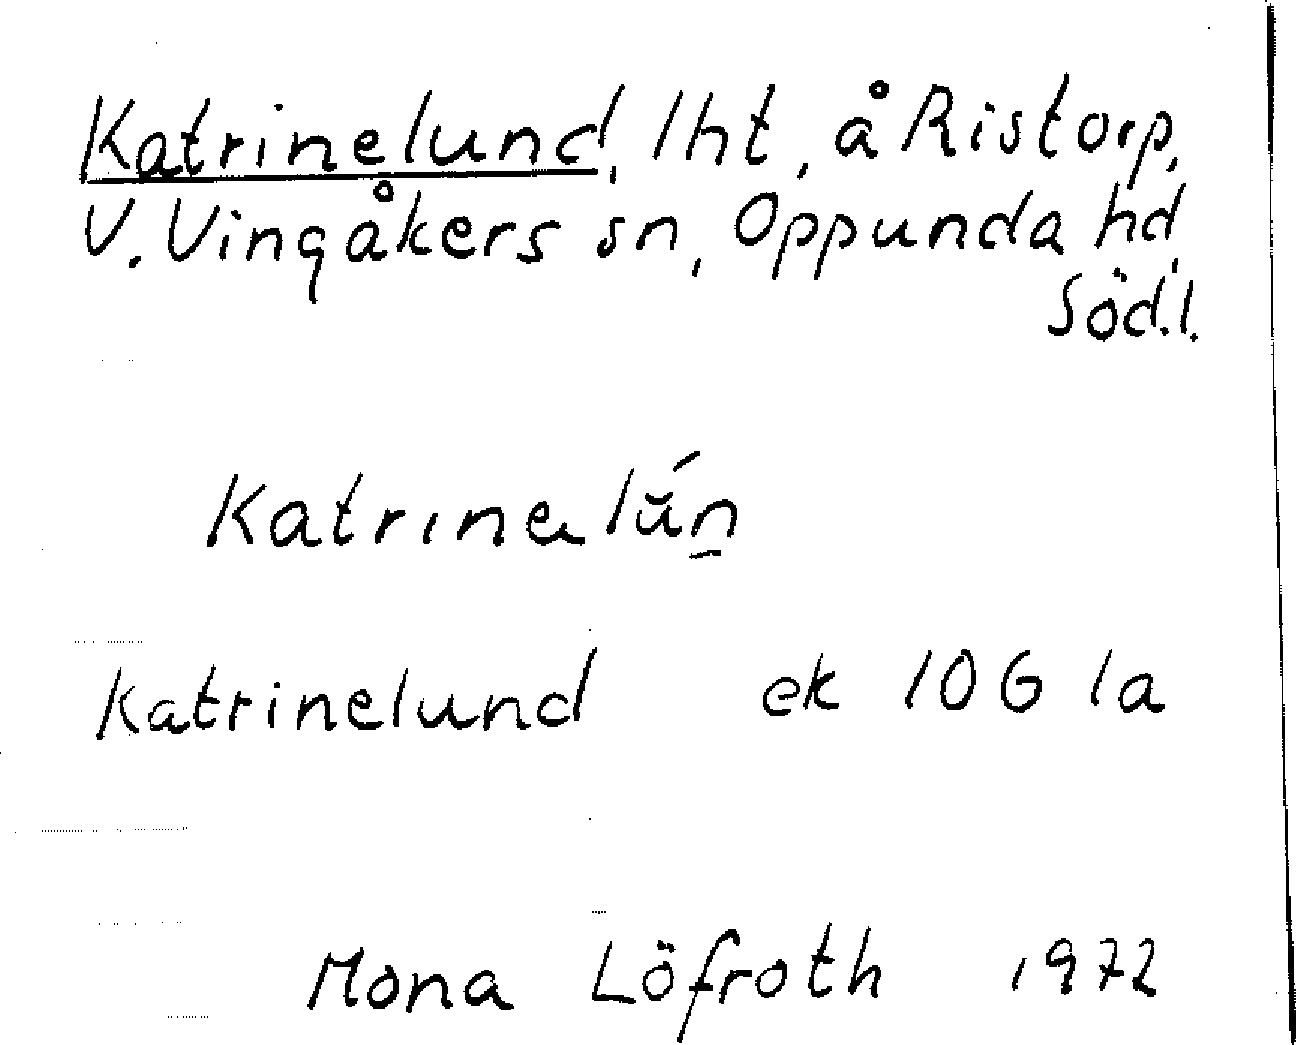 Katrinelund, lht, å Ristorp,
V. Vingåkers sn, Oppunda hd,
Söd.l.
Katrinelund ek 10G 1a
Mona Löfroth 1972